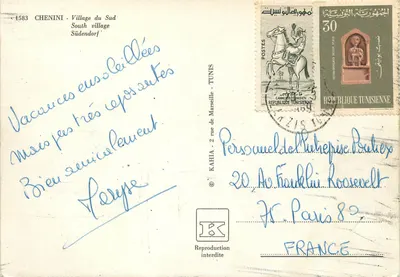 4583 - CHENINI - Village du Sud
South village
Südendorf
Vacances ensoleillées
Mais pas très reposantes
Bien amicalement
Maryse
© KAHIA - 2 rue de Marseille - TUNIS
K
Reproduction
interdite
POSTES
REPUBLIQUE TUNISIENNE
الجمهورية التونسية
30
REPUBLIQUE TUNISIENNE
Personnel de l'Entreprise
20 Av. Franklin Roosevelt
75. Paris 8e
FRANCE